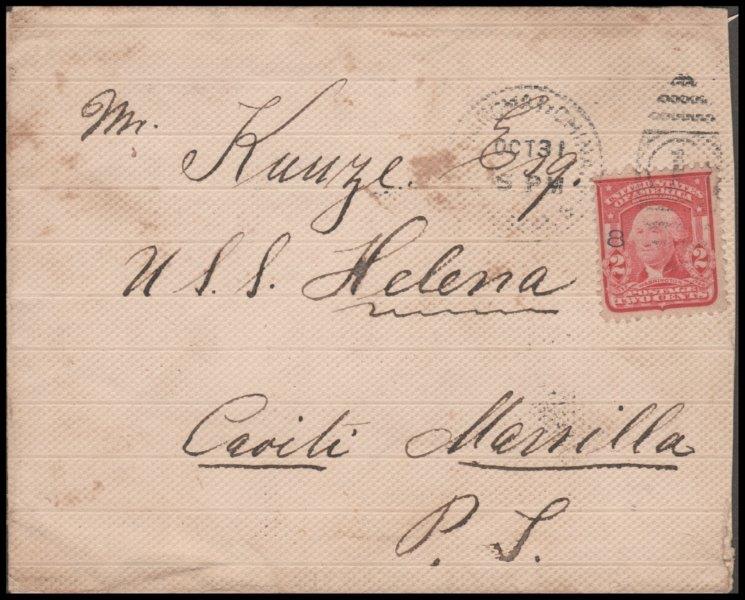 Mr.
Kunze. Esq.
U S. S. Helena
Caviti Manilla
P. I.
OCT 31
5 PM
UNITED STATES
OF AMERICA
8
2 2
WASHINGTON
POSTAGE
TWO CENTS